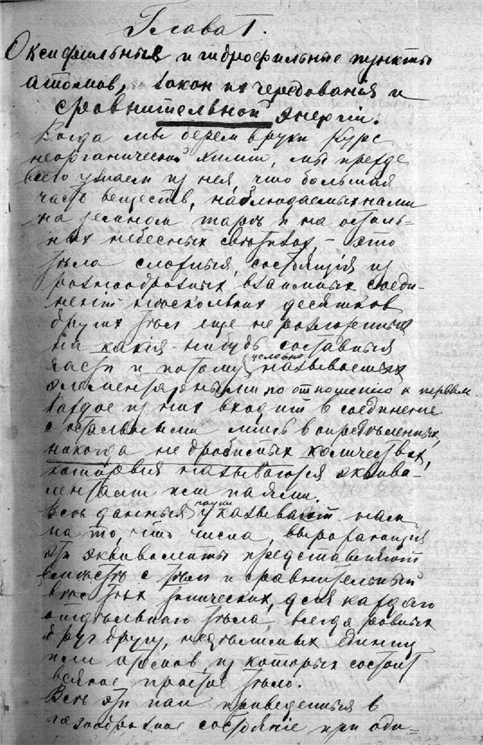 Глава 1.
Оксифильные и гидрофильные пункты
атомов, закон их чередования и
сравнительной энергии.
Когда мы берем в руки курс
неорганической химии, мы прежде
всего узнаем из нея, что большая
часть веществ, наблюдаемых нами
на земном шаре и на осталь-
ных небесных светилах – это
тела сложныя, состоящия из
разнообразных взаимных соеди-
нений нескольких десятков
других тел еще неразложенных
на какия-нибудь составныя
части и потому условно называемых
элементарными по отношению к первым.
Каждое из них входит в соединение
с остальными лишь в определенных,
никогда не дробимых количествах,
которыя называются эквива-
лентами или паями.
Все данныя науки указывают нам
на то, что числа, выражающия
эти эквиваленты представляют
вместе с тем и сравнительный
вес тех химических, для каждаго
отдельнаго тела всегда равных
друг другу, неделимых единиц
или атомов из которых состоит
всякое простое тело.
Все эти паи приведенныя в
газообразное состояніе при оди-